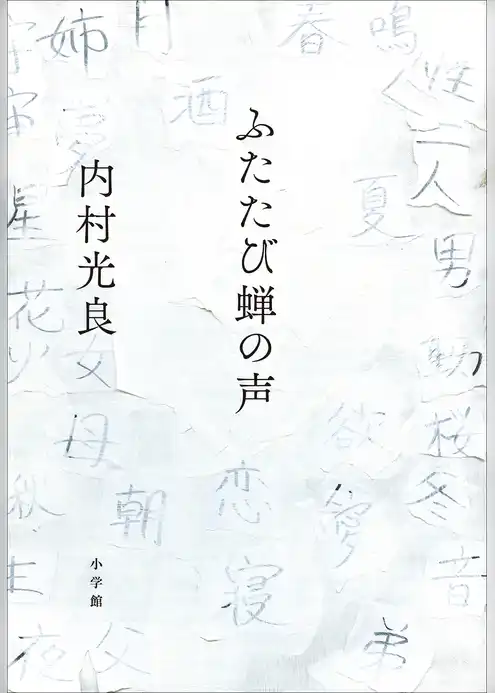 ふたたび蝉の声
内村光良
小学館
姉
月
春
鳴
酒
性
二人
夢
夏
星
男
花
火
女
動
母
欲
桜
秋
朝
恋
愛
冬
生
寝
音
夜
父
弟